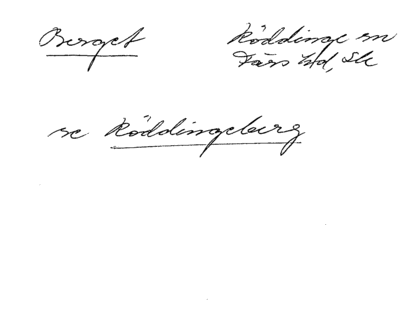 Berget
Röddinge sn
Färs hd, Sk
se Röddingeberg